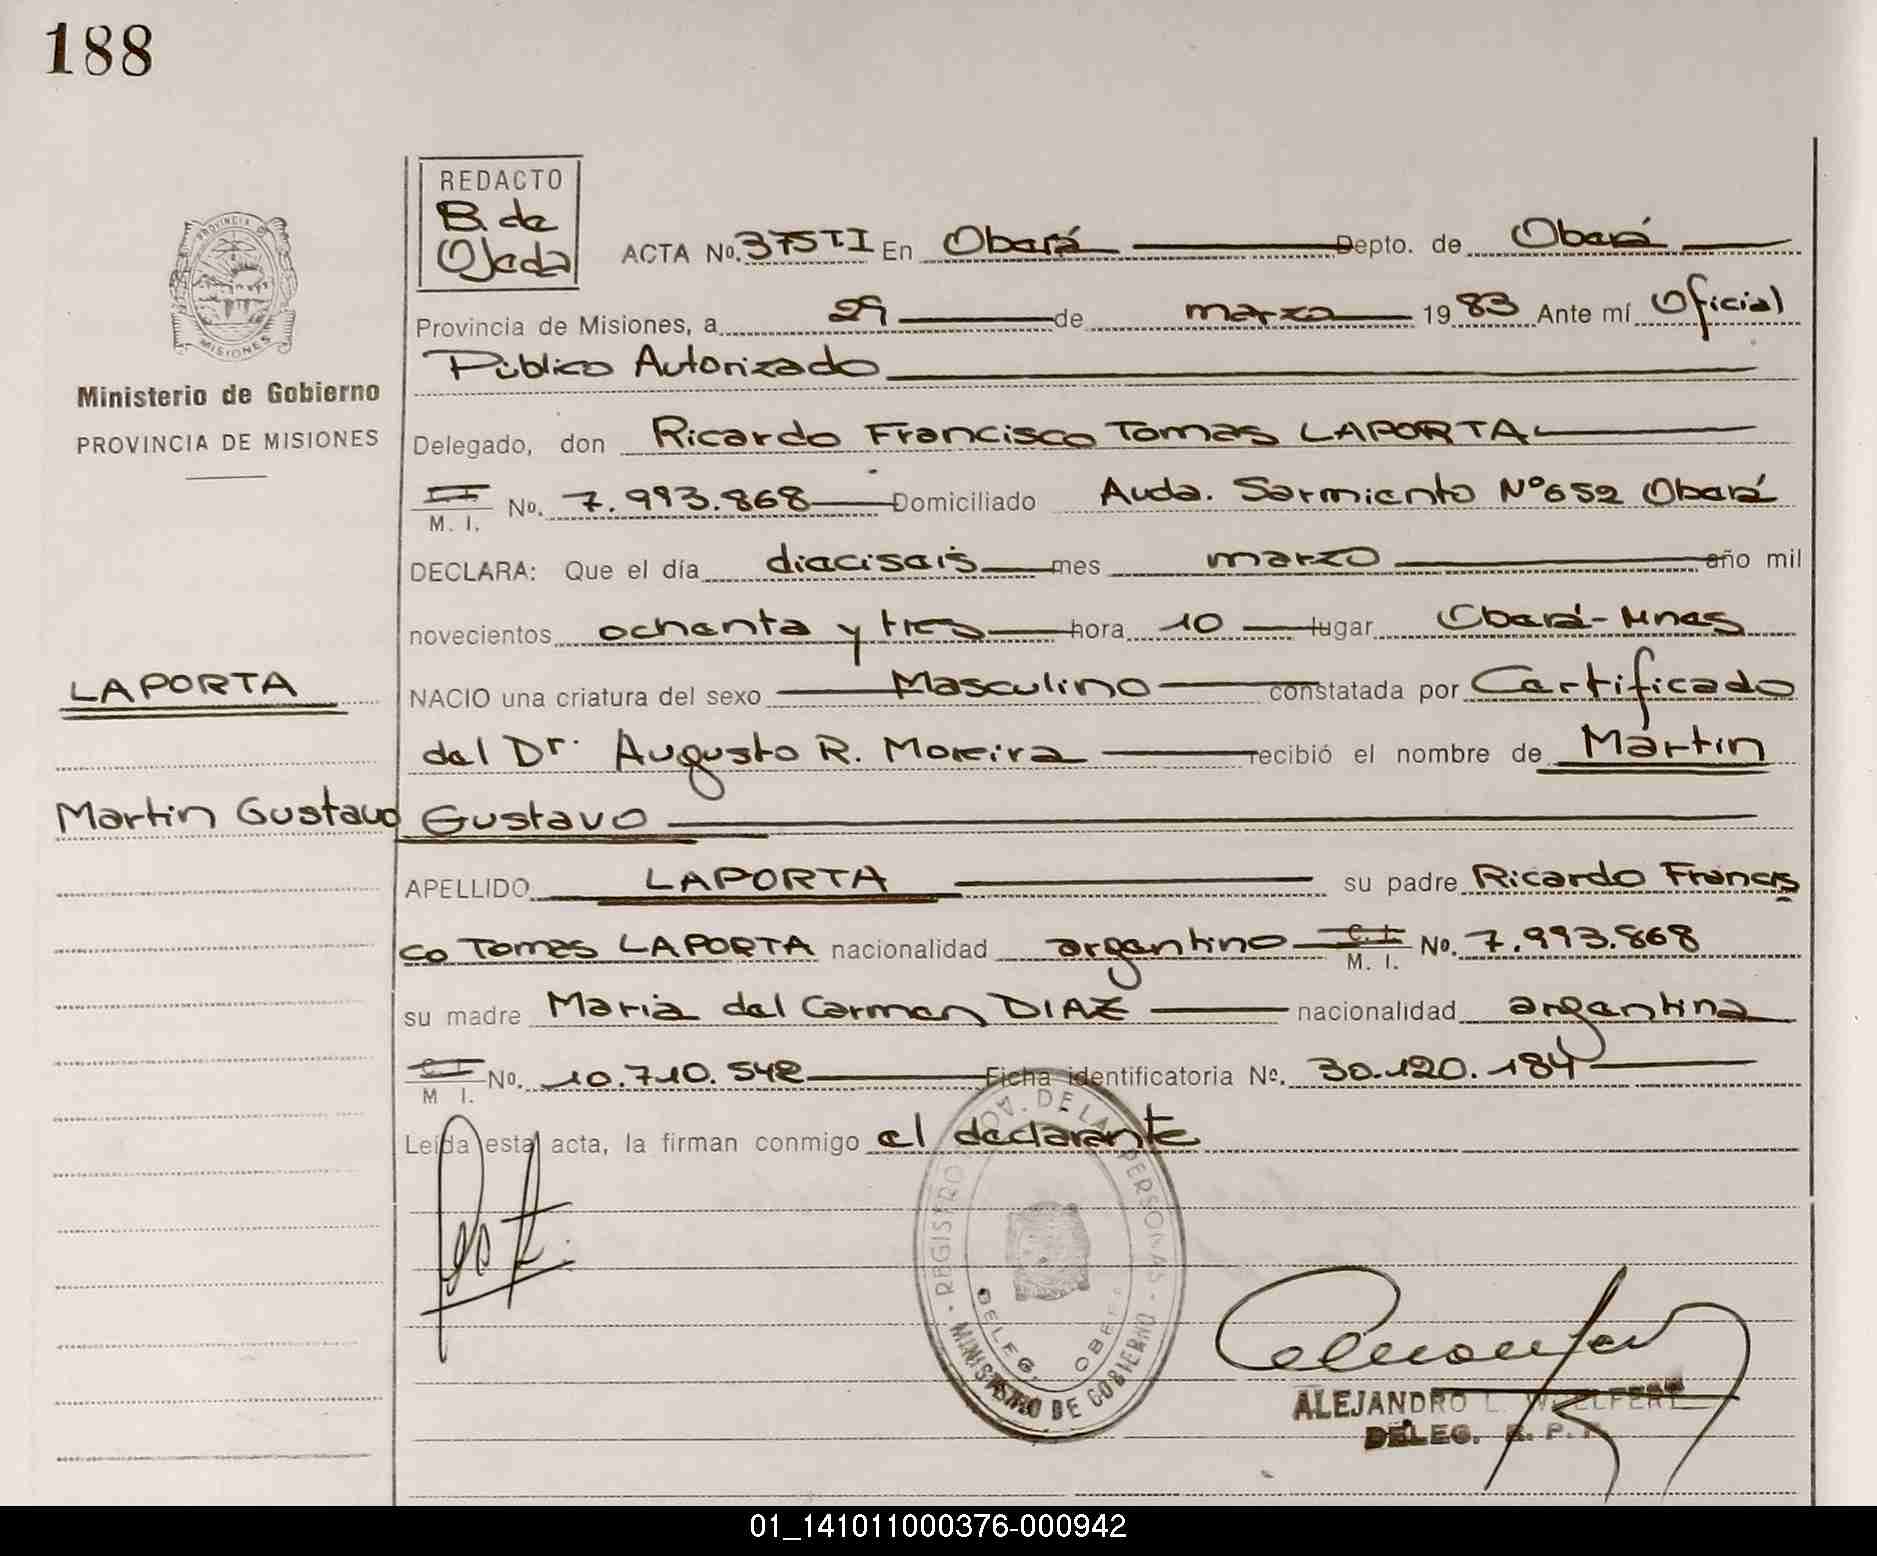 188
REDACTO
B. de
Ojeda
ACTA No. 375 T.I En Oberá Depto. de Oberá
Provincia de Misiones, a 29 de marzo 1983 Ante mí Oficial
Público Autorizado
Delegado, don Ricardo Francisco Tomas LAPORTA
C. I.
M. I. No. 7.993.868 Domiciliado Avda. Sarmiento Nº652 Oberá
DECLARA: Que el día dieciseis mes marzo año mil
novecientos ochenta y tres hora 10 lugar Oberá-Mnes
NACIO una criatura del sexo Masculino constatada por Certificado
del Dr. Augusto R. Moreira recibió el nombre de Martin
Gustavo
APELLIDO LAPORTA su padre Ricardo Francis
co Tomas LAPORTA nacionalidad argentino C. I.
M. I. No. 7.993.868
su madre Maria del Carmen DIAZ nacionalidad argentina
C. I.
M I. No. 10.710.542 Ficha identificatoria No. 30.120.184
Leída esta acta, la firman conmigo el declarante
PROVINCIA DE
MISIONES
Ministerio de Gobierno
PROVINCIA DE MISIONES
LAPORTA
Martin Gustavo
REGISTRO DE LA PERSONAS
MINISTERIO DE GOBIERNO
DELEG. OBERA
ALEJANDRO L. WOELFERT
DELEG. R. P.
01_141011000376-000942